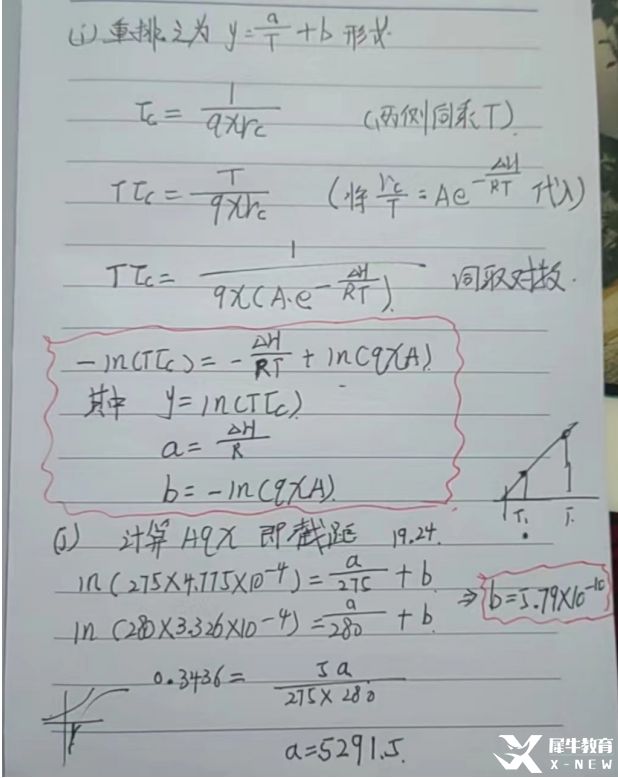 (i) 重排之为 y = a/T + b 形式.
τc = 1/(qχrc) (两侧同乘T).
Tτc = T/(qχrc) (将 rc/T = Ae^(-ΔH/RT) 代入)
Tτc = 1/(qχ(A·e^(-ΔH/RT))) 同取对数.
-ln(Tτc) = -ΔH/RT + ln(qχA)
其中 y = ln(Tτc)
a = ΔH/R
b = -ln(qχA).
(j) 计算Aqχ 即截距 19.24.
ln(275×4.775×10^-4) = a/275 + b
ln(280×3.326×10^-4) = a/280 + b ⇒ b=5.79×10^-10
0.3436 = 5a/(275×280)
a=5291.5.
T₁
犀牛教育
X-NEW